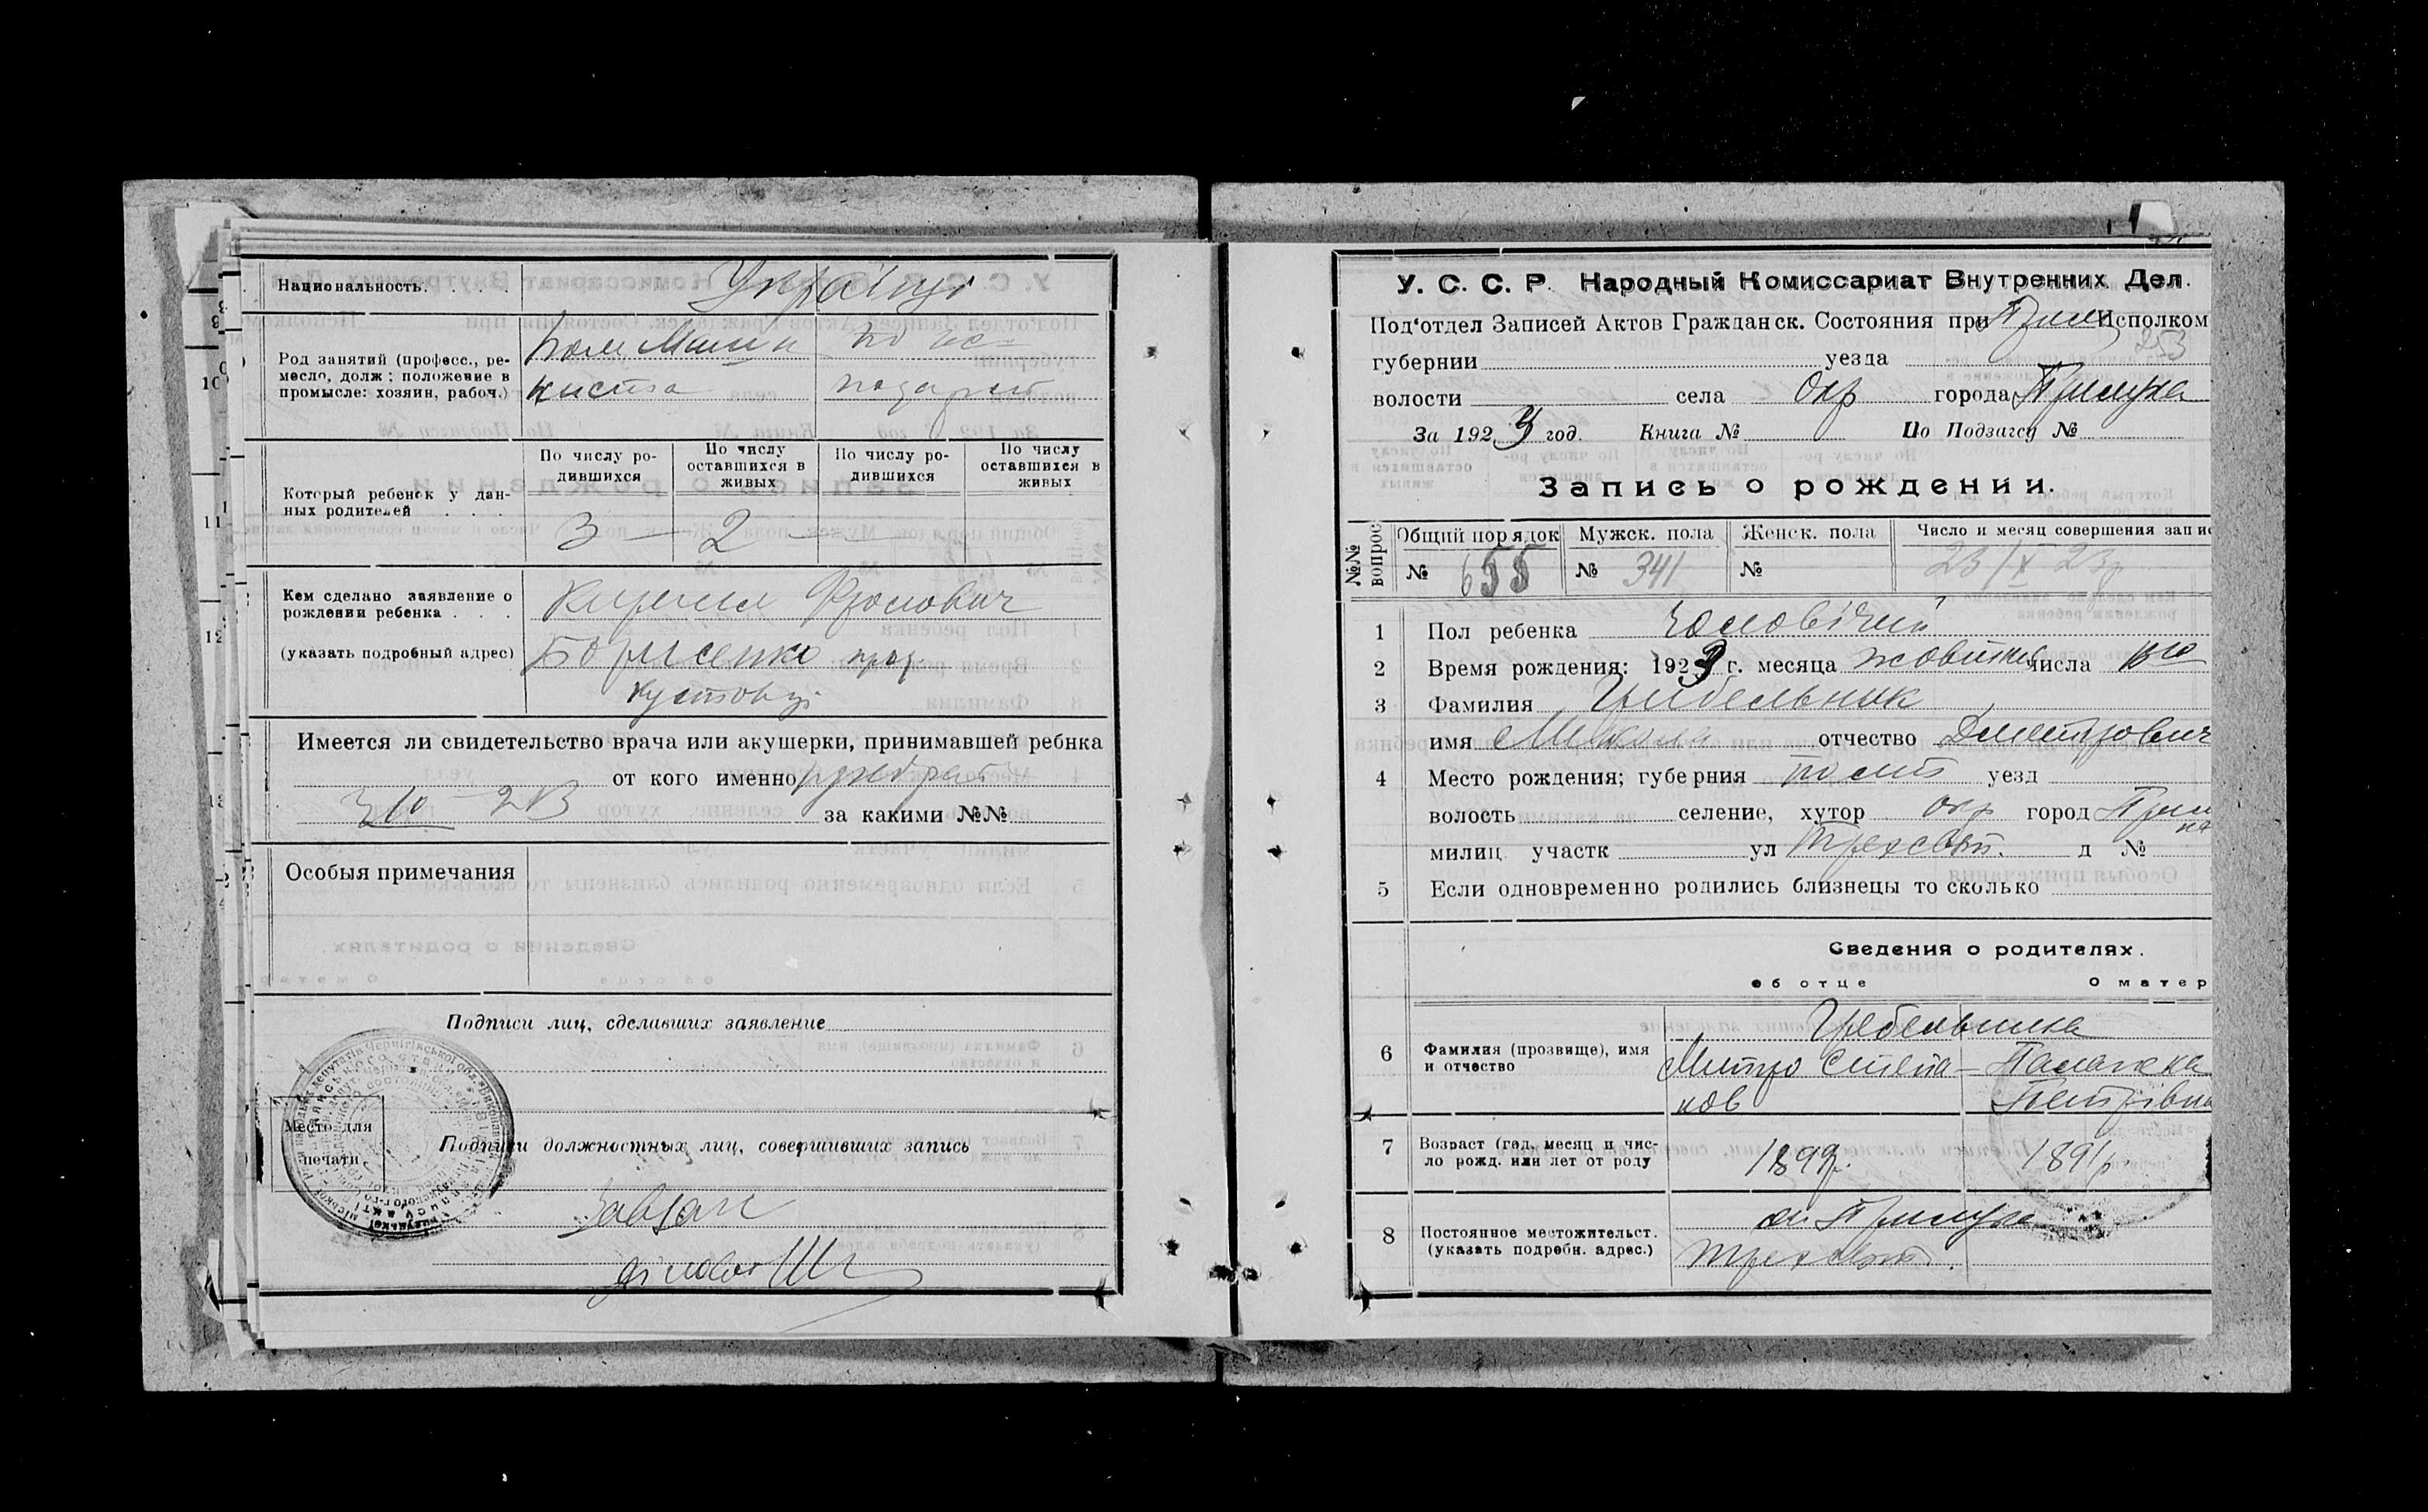 Национальность. . . . Українці
Род занятий (професс., ре-
месло, долж; положение в
промысле: хозяин, рабоч.)
пом. Маши
ниста
по гос=
подарст
Который ребенок у дан-
ных родителей . . . .
По числу ро-
дившихся
По числу
оставшихся в
живых
По числу ро-
дившихся
По числу
оставшихся в
живых
3 2
Кем сделано заявление о
рождении ребенка . . . .
(указать подробный адрес)
Кирилл Фролович
Борисенко
Кустовці
Имеется ли свидетельство врача или акушерки, принимавшей ребнка
от кого именно
за какими №№
Особыя примечания
Подписи лиц, сделавших заявление
Место для
печати
Подписи должностных лиц, совершивших запись
Завзагс
діловод
У. С. С. Р. Народный Комиссариат Внутренних Дел.
Под'отдел Записей Актов Гражданск. Состояния при Прил. Исполком
253
губернии уезда
волости села Окр города Прилука
За 1923 год. Книга № По Подзагсу №
Запись о рождении.
№№
вопрос
Общий порядок Мужск. пола Женск. пола Число и месяц совершения запис
№ 655 № 341 № 23/X 23р
1 Пол ребенка Чоловічий
2 Время рождения: 1923 г. месяца жовтня числа
3 Фамилия Цибельник
имя Микола отчество Дмитрович
4 Место рождения; губерния Полт уезд
волость селение, хутор окр город Прилу
ка
милиц участк ул Трехсвят. д №
5 Если одновременно родились близнецы то сколько
Сведения о родителях.
об отце О матер
6 Фамилия (прозвище), имя
и отчество
Цибельника
Митро Степа- Палажка
нов Петрівна
7 Возраст (год, месяц и чис-
ло рожд. или лет от роду
189 1891р.
8 Постоянное местожительст.
(указать подробн. адрес.)
м. Прилука
Трехсвят.